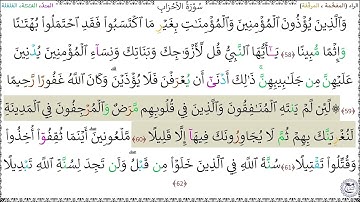 سُورَةُ الأَحْزَابِ
وَالَّذِينَ يُؤْذُونَ الْمُؤْمِنِينَ وَالْمُؤْمِنَاتِ بِغَيْرِ مَا اكْتَسَبُوا فَقَدِ احْتَمَلُوا بُهْتَانًا
وَإِثْمًا مُّبِينًا ﴿58﴾ يَا أَيُّهَا النَّبِيُّ قُل لِّأَزْوَاجِكَ وَبَنَاتِكَ وَنِسَاءِ الْمُؤْمِنِينَ يُدْنِينَ
عَلَيْهِنَّ مِن جَلَابِيبِهِنَّ ذَٰلِكَ أَدْنَىٰ أَن يُعْرَفْنَ فَلَا يُؤْذَيْنَ وَكَانَ اللَّهُ غَفُورًا رَّحِيمًا
﴿59﴾ ۞ لَّئِن لَّمْ يَنتَهِ الْمُنَافِقُونَ وَالَّذِينَ فِي قُلُوبِهِم مَّرَضٌ وَالْمُرْجِفُونَ فِي الْمَدِينَةِ
لَنُغْرِيَنَّكَ بِهِمْ ثُمَّ لَا يُجَاوِرُونَكَ فِيهَا إِلَّا قَلِيلًا ﴿60﴾ مَّلْعُونِينَ أَيْنَمَا ثُقِفُوا أُخِذُوا
وَقُتِّلُوا تَقْتِيلًا ﴿61﴾ سُنَّةَ اللَّهِ فِي الَّذِينَ خَلَوْا مِن قَبْلُ وَلَن تَجِدَ لِسُنَّةِ اللَّهِ تَبْدِيلًا
﴿62﴾